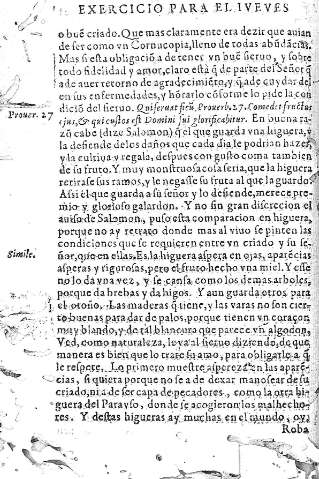 EXERCICIO PARA EL IVEVES
o buē criado. Que mas claramente era dezir que auian
de ser como vn Cornucopia, lleno de todas abūdācias.
Mas si esta obligació a de tener vn buē sieruo, y sobre
todo fidelidad y amor, claro está q̄ de parte del Señor q̄
a de auer retorno de agradecimiēto, y q̄ a de cuydar del
en sus enfermedades, y hōrarlo cōforme lo pide la con
dició del sieruo.
Prouer. 27
ra
zū cabe (dize Salomon) q̄ el que guarda vna higuera, y
la defiende de los daños que cada dia le podrian hazer,
y la cultiua y regala, despues con gusto coma tambien
de su fruto. Y muy monstruosa cosa seria, que la higuera
retirase sus ramos, y le negasse su fruta al que la guardo.
Assi el que guarda a su señor y lo defiende, merece pre-
mio y glorioso galardon. Y no sin gran discrecion el
auiso de Salomon, puso esta comparacion en higuera,
porque no ay retrato donde mas al viuo se pinten las
condiciones que se requieren entre vn criado y su se-
Simile.
ñor, que en ellas. Es la higuera aspera en ojas, aparēcias
asperas y rigorosas, pero el fruto hecho vna miel. Y esse
no lo da vna vez, y se cansa como los demas arboles,
porque da brebas y da higos. Y aun guarda otros para
el otoño. Las maderas q̄ tiene, y las varas no son cier-
to buenas para dar de palos, porque tienen vn coraçon
muy blando, y de tal blancura que parece vn algodon.
Ved, como naturaleza, le ya al sieruo diziendo, de que
manera es bien que lo trate su amo, para obligarle a q̄
le respete. Lo primero muestre aspereza en las aparē-
cias, si quiera porque no se a de dexar manosear de su
criado, ni a de ser capa de pecadores, como la otra hi
guera del Parayso, donde se acogieron los malhecho-
res. Y destas higueras ay muchas en el mundo, oy,
Roba